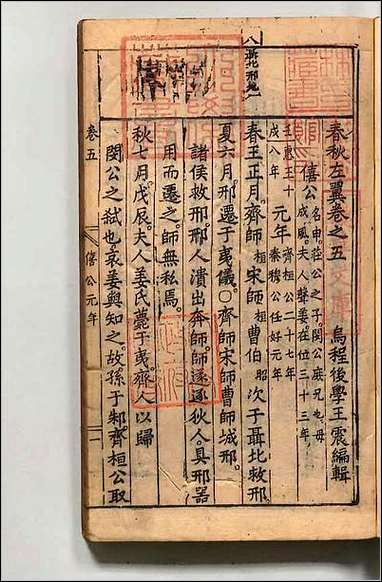 春秋左翼卷之五　烏程後學王震編輯
僖公
名申莊公之子閔公庶兄也母
成風夫人聲姜在位三十三年
壬惠王十
戌八年
元年
齊桓公二十七年
秦穆公任好元年
春王正月。齊師桓宋師桓曹伯昭次于聶北救邢
夏六月邢遷于夷儀。〇齊師宋師曹師城邢。
諸侯救邢。邢人潰出奔師。師遂逐狄人。具邢器
用而遷之。師無私焉。
秋七月戊辰。夫人姜氏薨于夷。齊人以歸
閔公之弒也。哀姜與知之。故孫于邾。齊桓公取
卷五
僖公元年
一